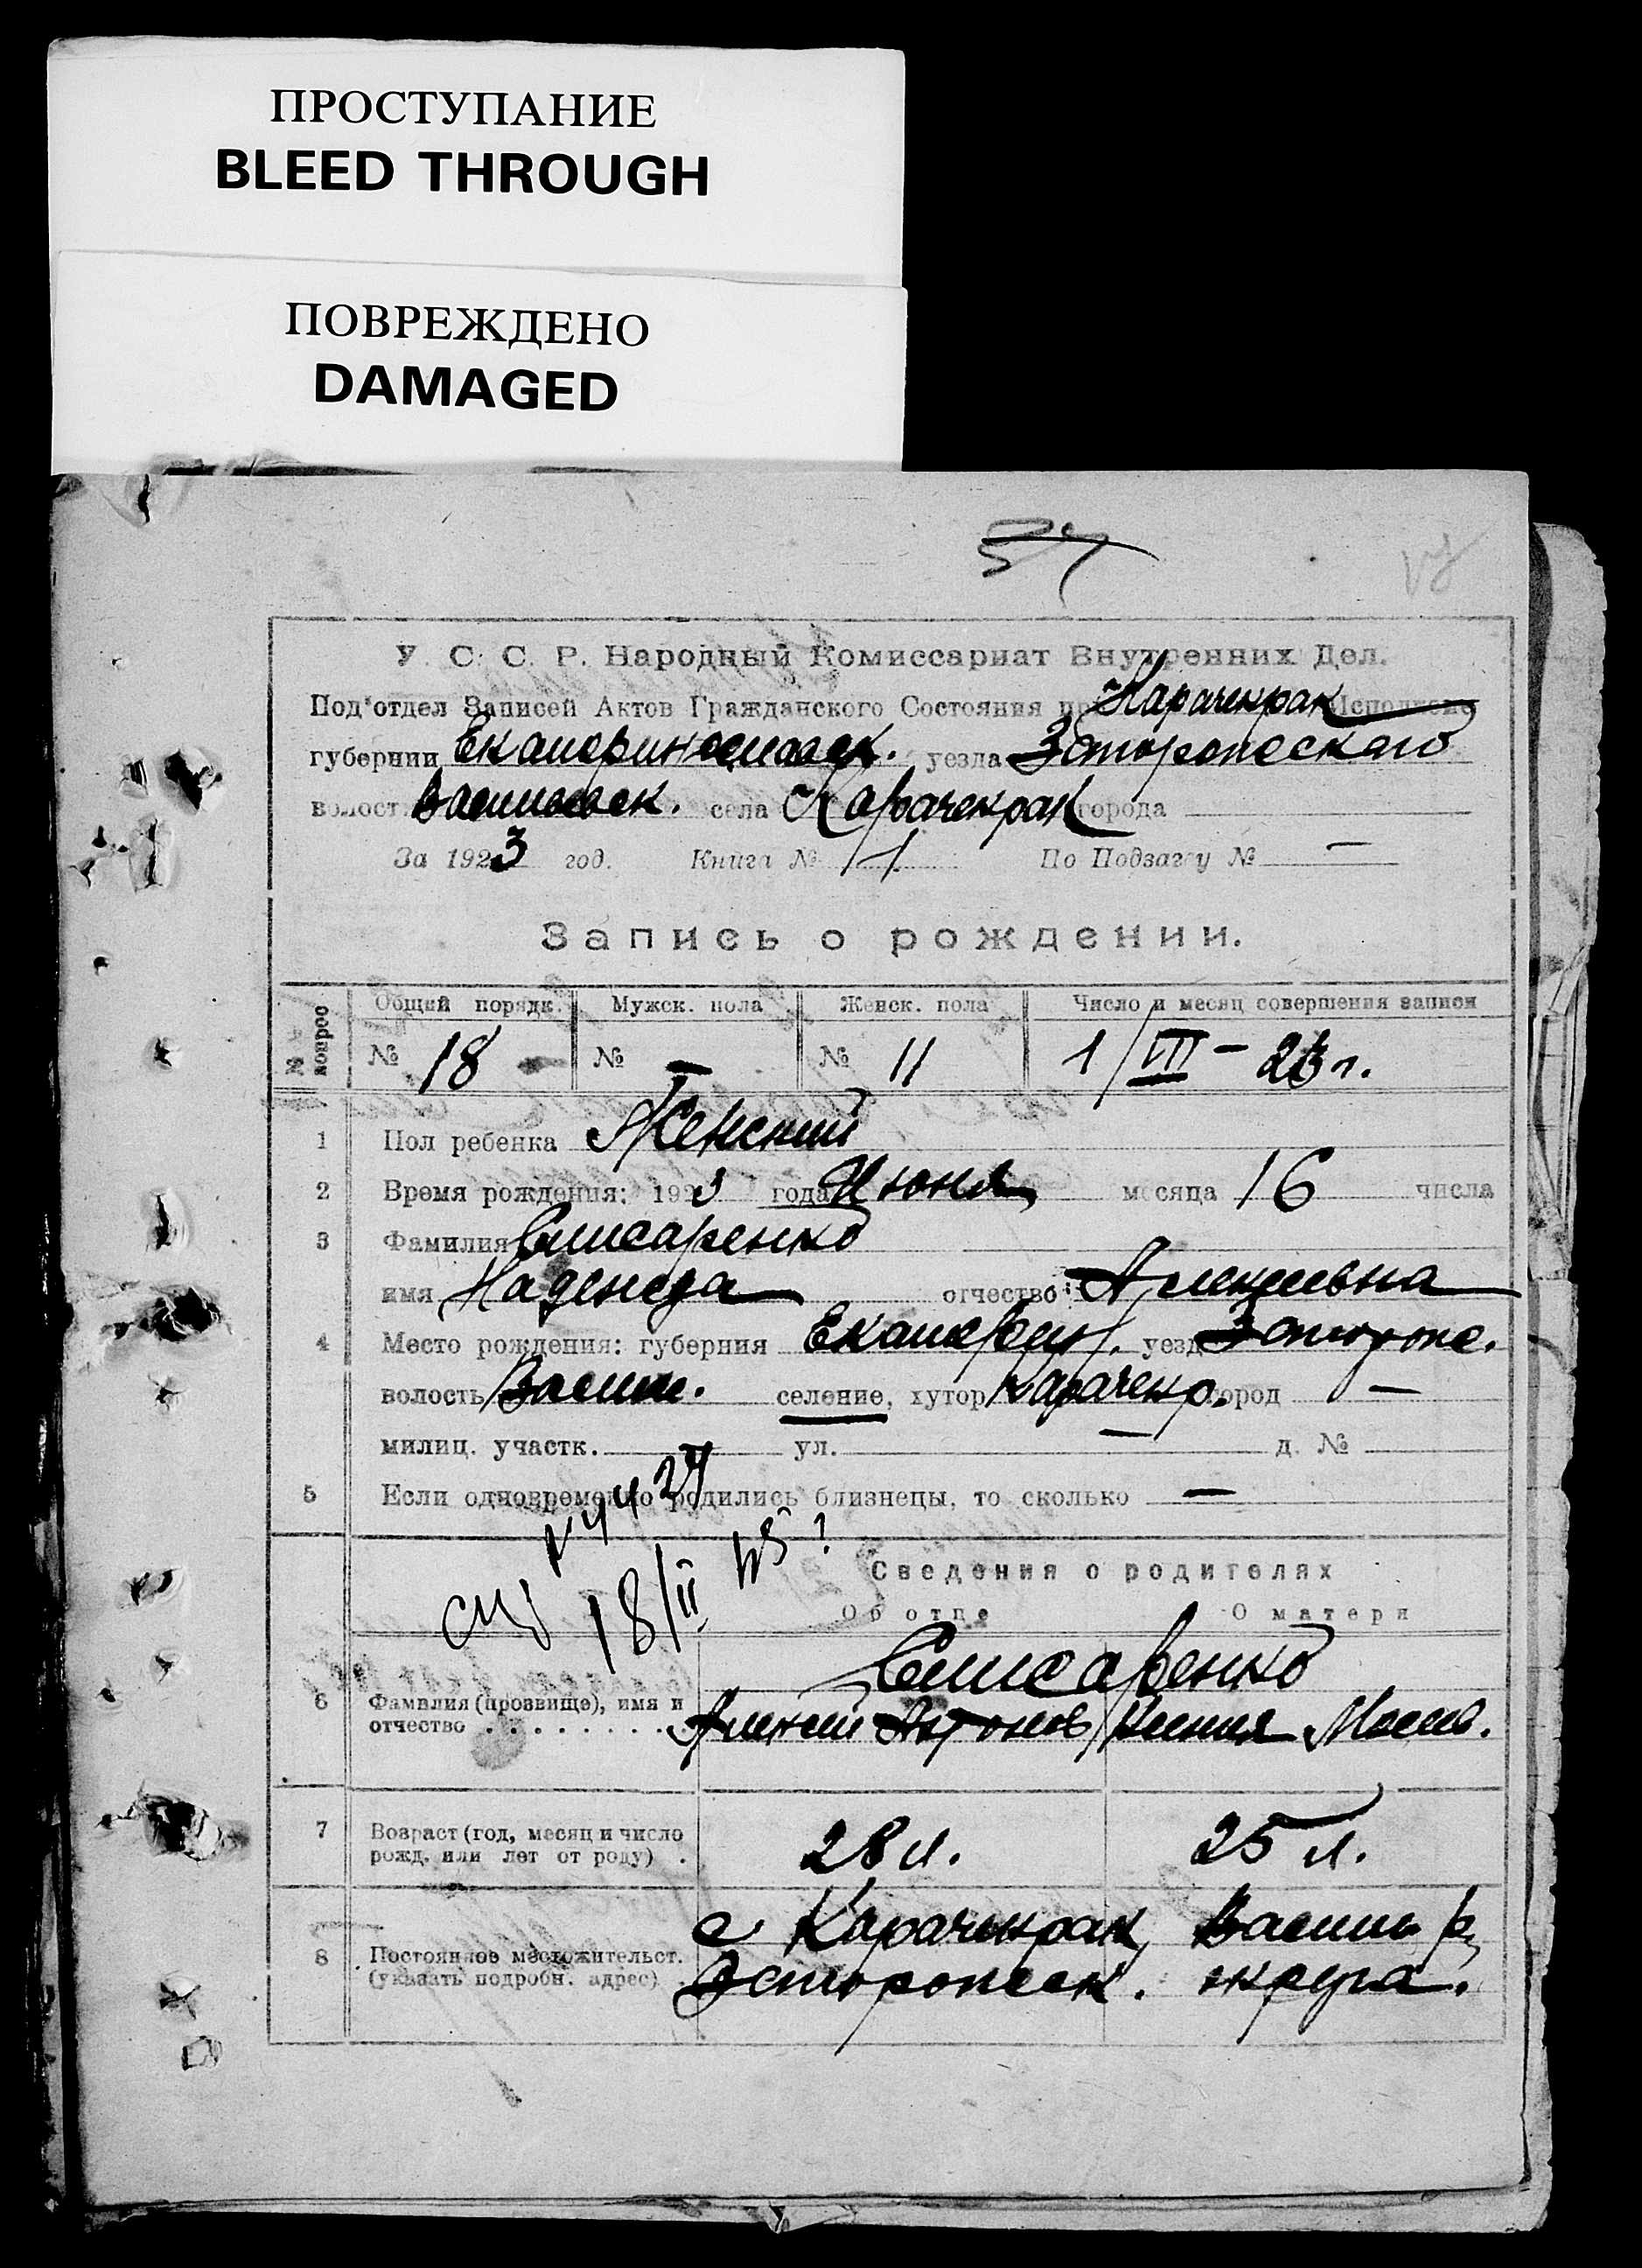 ПРОСТУПАНИЕ
BLEED THROUGH
ПОВРЕЖДЕНО
DAMAGED
57
У. С. С. Р. Народный Комиссариат Внутренних Дел.
Под'отдел Записей Актов Гражданского Состояния при Карачекрак Исполкоме
губернии Екатеринославск. уезда Запорожского
волост. Васильевск. села Карачекрак города
За 1923 год. Книга № 1 По Подзагсу № —
Запись о рождении.
Общий порядк. Мужск. пола Женск. пола Число и месяц совершения записи
№ 18 № — № 11 1/VII - 23 г.
1 Пол ребенка Женский
2 Время рождения: 1923 года Июня месяца 16 числа
3 Фамилия Слисаренко
имя Надежда отчество: Алексеевна
4 Место рождения: губерния Екатерин. уезд Запорож.
волость Васил. селение, хутор Карачекр. город —
милиц. участк. — ул. — д. №
5 Если одновременно родились близнецы, то сколько —
18/II
Сведения о родителях
Об отце О матери
Слисаренко
6 Фамилия (прозвище), имя и
отчество Алексей Антонов Ксения Моисе.
7 Возраст (год, месяц и число
рожд. или лет от роду) 28 л. 25 л.
с Карачекрак, Василь р,
8 Постоянное местожительст.
(указать подробн. адрес) Запорожск. округа.